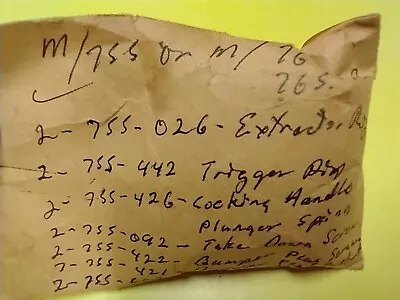 M/755 or M/76
765.?
2-755-026-Extractor Pin
2-755-442 Trigger Pin
2-755-426-Cocking Handle
Plunger Spring
2-755-092-Take Down Screw
2-755-422-Bumper Plug Screw
2-755-421-